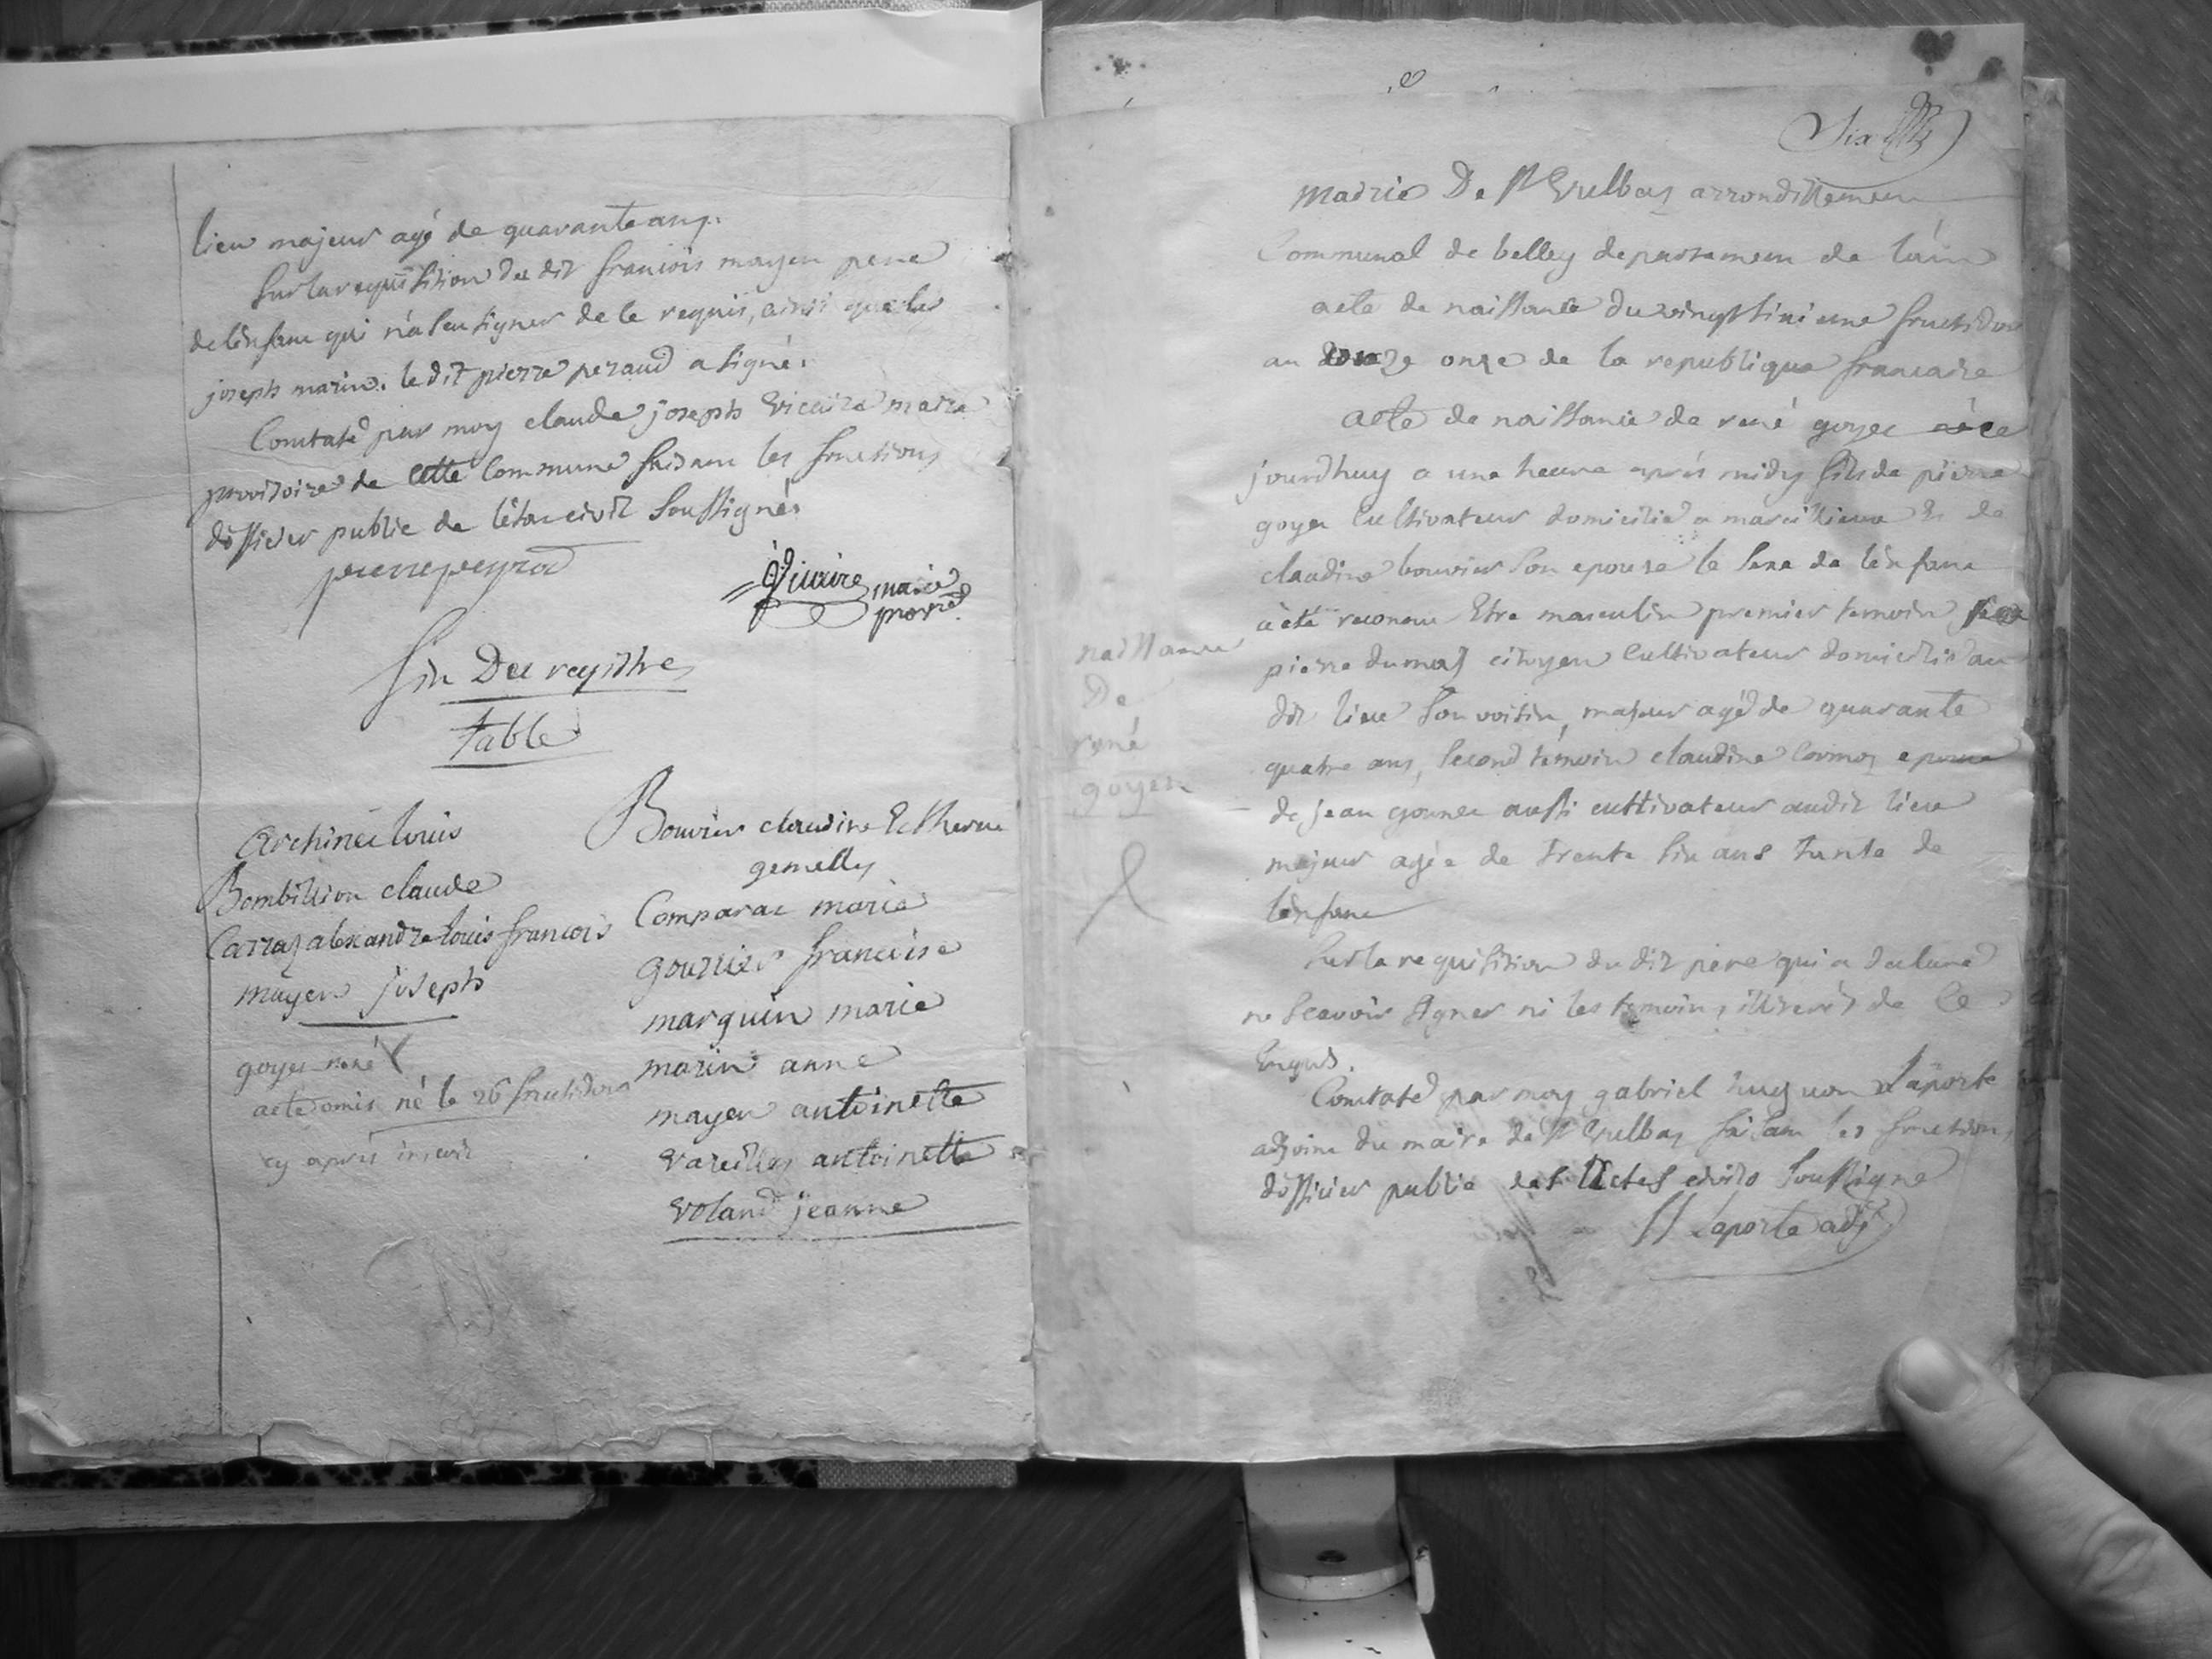 lieu majeur agé de quarante ans.
Sur la requisition du dit francois mayen pere
de lènfant qui n'a seu signer de le requis, ainsi que les
joseph marin. le dit pierre peraud a signé.
Constaté par moy claude joseph Vicaire maire
provisoire de cette Commune faisant les fonctions
dofficier public de lètat civil Soussigné.
pierre peyrod
Vicaire maire
provre.
fin Du registre
table
Archinée louis
Bombillion claude
Carraz alexandre louis francois
mayen joseph
goyer rené
acte omis né le 26 fructidor
cy après inscrit
Bouvier claudine Et
gemelles
Comparat marie
gourrier francoise
marguin marie
marin anne
mayen antoinette
Vareilles antoinette
Voland jeanne
Six
mairie De St Vulbas arrondissement
Communal de belley departement de lain
acte de naissance du vingt sixieme fructidor
an onze de la republique francaise
acte de naissance de rené goyer né ce
jourdhuy a une heure après midy fils de pierre
goyer Cultivateur domicilié a marcillieux Et de
claudine bouvier Son epouse le Sexe de lènfant
à èté reconnu Etre masculin premier temoin
pierre dumas citoyen Cultivateur domicilié au
dit lieu Son voisin, majeur agé de quarante
quatre ans, Second témoin claudine Cormoz epouse
de jean aussi cultivateur audit lieu
majeur agée de trente six ans tante de
lènfant
Sur la requisition du dit pere qui a declaré
ne Scavoir Signer ni les temoins illiterés de Ce
Enquis.
Constaté par moy gabriel huguon Laporte
adjoint du maire de St Vulbas faisant les fonctions
dofficier public des Actes civils Soussigné
Laporte adjt
naissance
De
rené
goyer